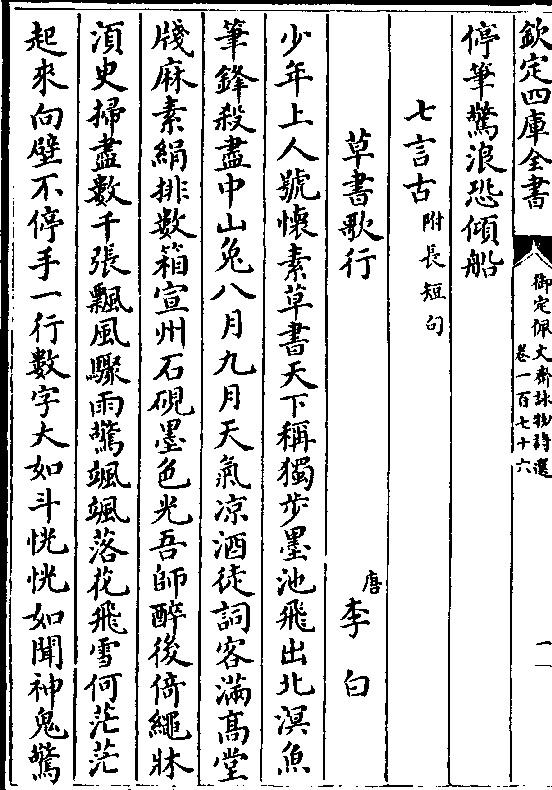 欽定四庫全書
御定佩文齋詠物詩選
卷一百七十六
一
停筆驚浪恐傾船
七言古附長短句
草書歌行
唐李白
少年上人號懷素草書天下稱獨步墨池飛出北溟魚
筆鋒殺盡中山兔八月九月天氣凉酒徒詞客滿髙堂
牋麻素絹排數箱宣州石硯墨色光吾師醉後倚繩牀
湏史掃盡數千張飄風驟雨驚颯颯落花飛雪何茫茫
起來向壁不停手一行數字大如斗恍恍如聞神鬼驚